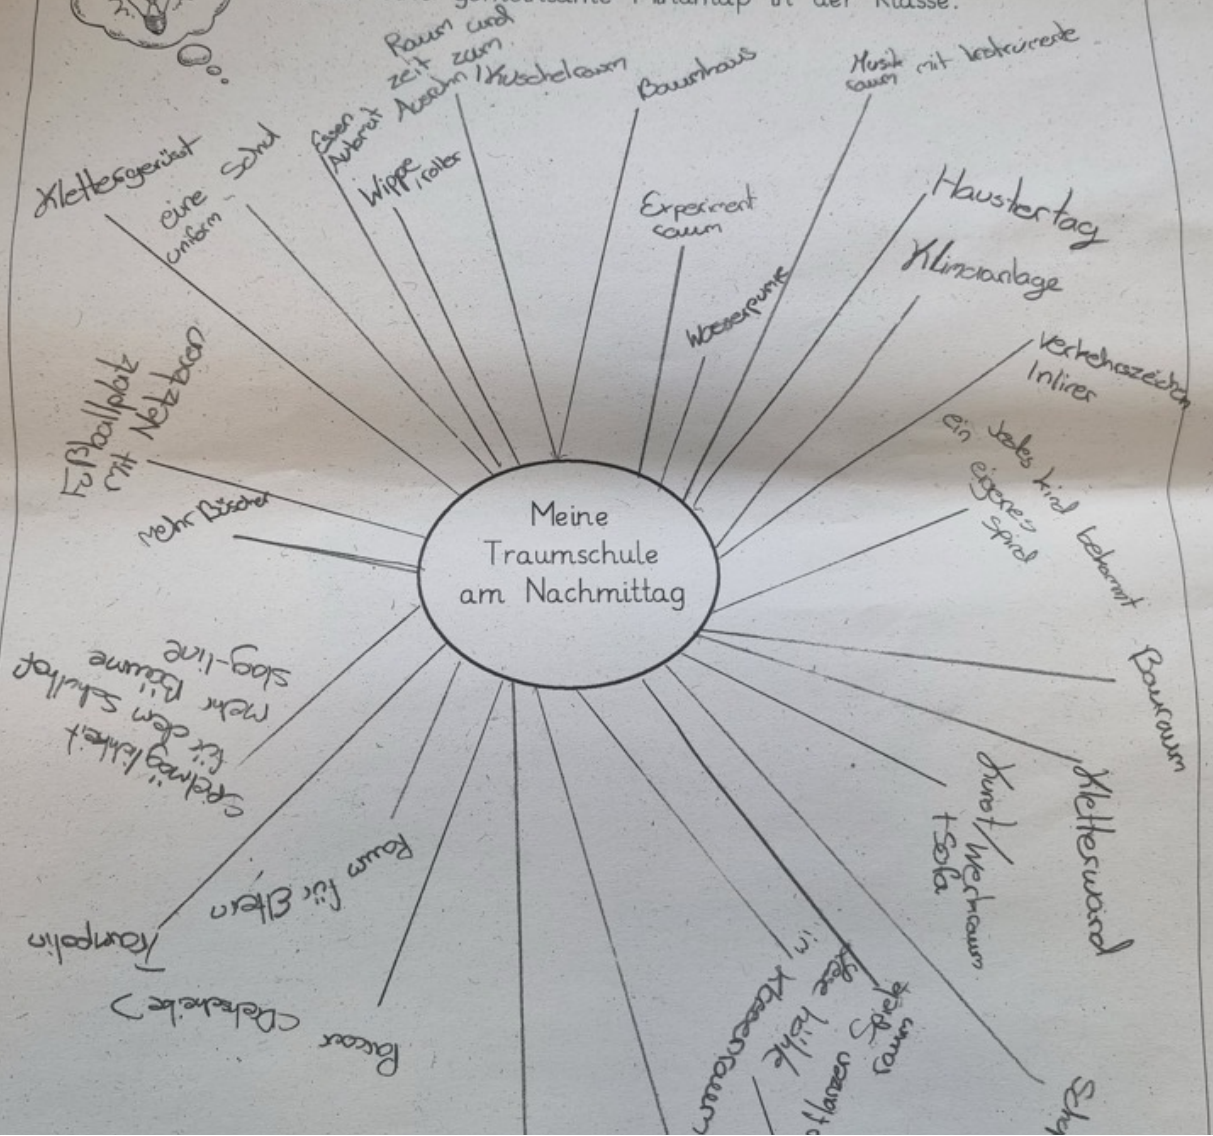 Klasse.
Meine
Traumschule
am Nachmittag
Klettergerüst
eine Schul
uniform
Essen
Automat
Wippe, roller
Raum und
zeit zum
Ausruhn / Kuschelraum
Baumhaus
Experiment
raum
Wasserpumpe
Musik
raum mit Instrumente
Haustertag
Klimaanlage
verkehrszeichen
Inliner
Jedes kind bekommt
ein eigenes
Spind
Bauraum
Kletterwand
Kunst/Werkraum
+ Sofa
Sch
raum
lese höhle
in
Klassenraum
Parcour (Dehscheibe)
Raum für Eltern
Trampolin
Spielmöglichkeit
für dem Schulhof
mehr Bäume
slag-line
mehr Büscher
Fußballplatz
mit Netztoren